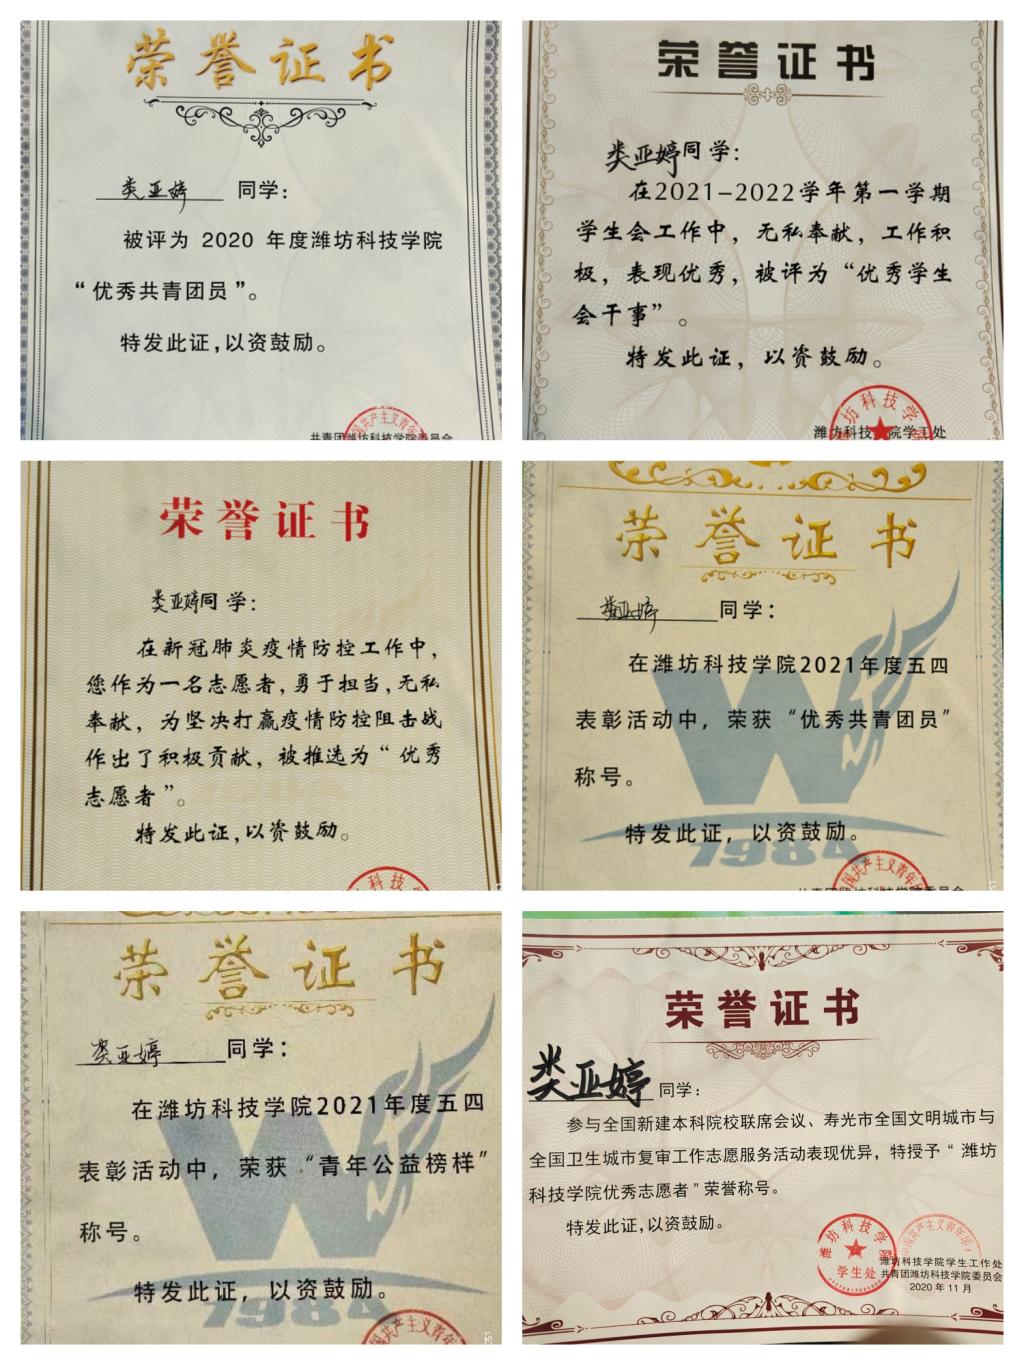 荣誉证书
类亚婷 同学：
被评为 2020 年度潍坊科技学院
“优秀共青团员”。
特发此证,以资鼓励。
共青团潍坊科技学院委员会
荣誉证书
类亚婷同学：
在2021-2022学年第一学期
学生会工作中，无私奉献，工作积
极，表现优秀，被评为“优秀学生
会干事”。
特发此证，以资鼓励。
潍坊科技学院学工处
荣誉证书
类亚婷同学：
在新冠肺炎疫情防控工作中，
您作为一名志愿者，勇于担当，无私
奉献，为坚决打赢疫情防控阻击战
作出了积极贡献，被推选为“优秀
志愿者”。
特发此证,以资鼓励。
荣誉证书
类亚婷 同学：
在潍坊科技学院2021年度五四
表彰活动中，荣获“优秀共青团员”
称号。
特发此证，以资鼓励。
1984
共青团潍坊科技学院委员会
荣誉证书
类亚婷 同学：
在潍坊科技学院2021年度五四
表彰活动中，荣获“青年公益榜样”
称号。
特发此证，以资鼓励。
1984
荣誉证书
类亚婷 同学：
参与全国新建本科院校联席会议、寿光市全国文明城市与
全国卫生城市复审工作志愿服务活动表现优异，特授予“潍坊
科技学院优秀志愿者”荣誉称号。
特发此证,以资鼓励。
潍坊科技学院
学生处
潍坊科技学院学生工作处
共青团潍坊科技学院委员会
2020 年 11 月